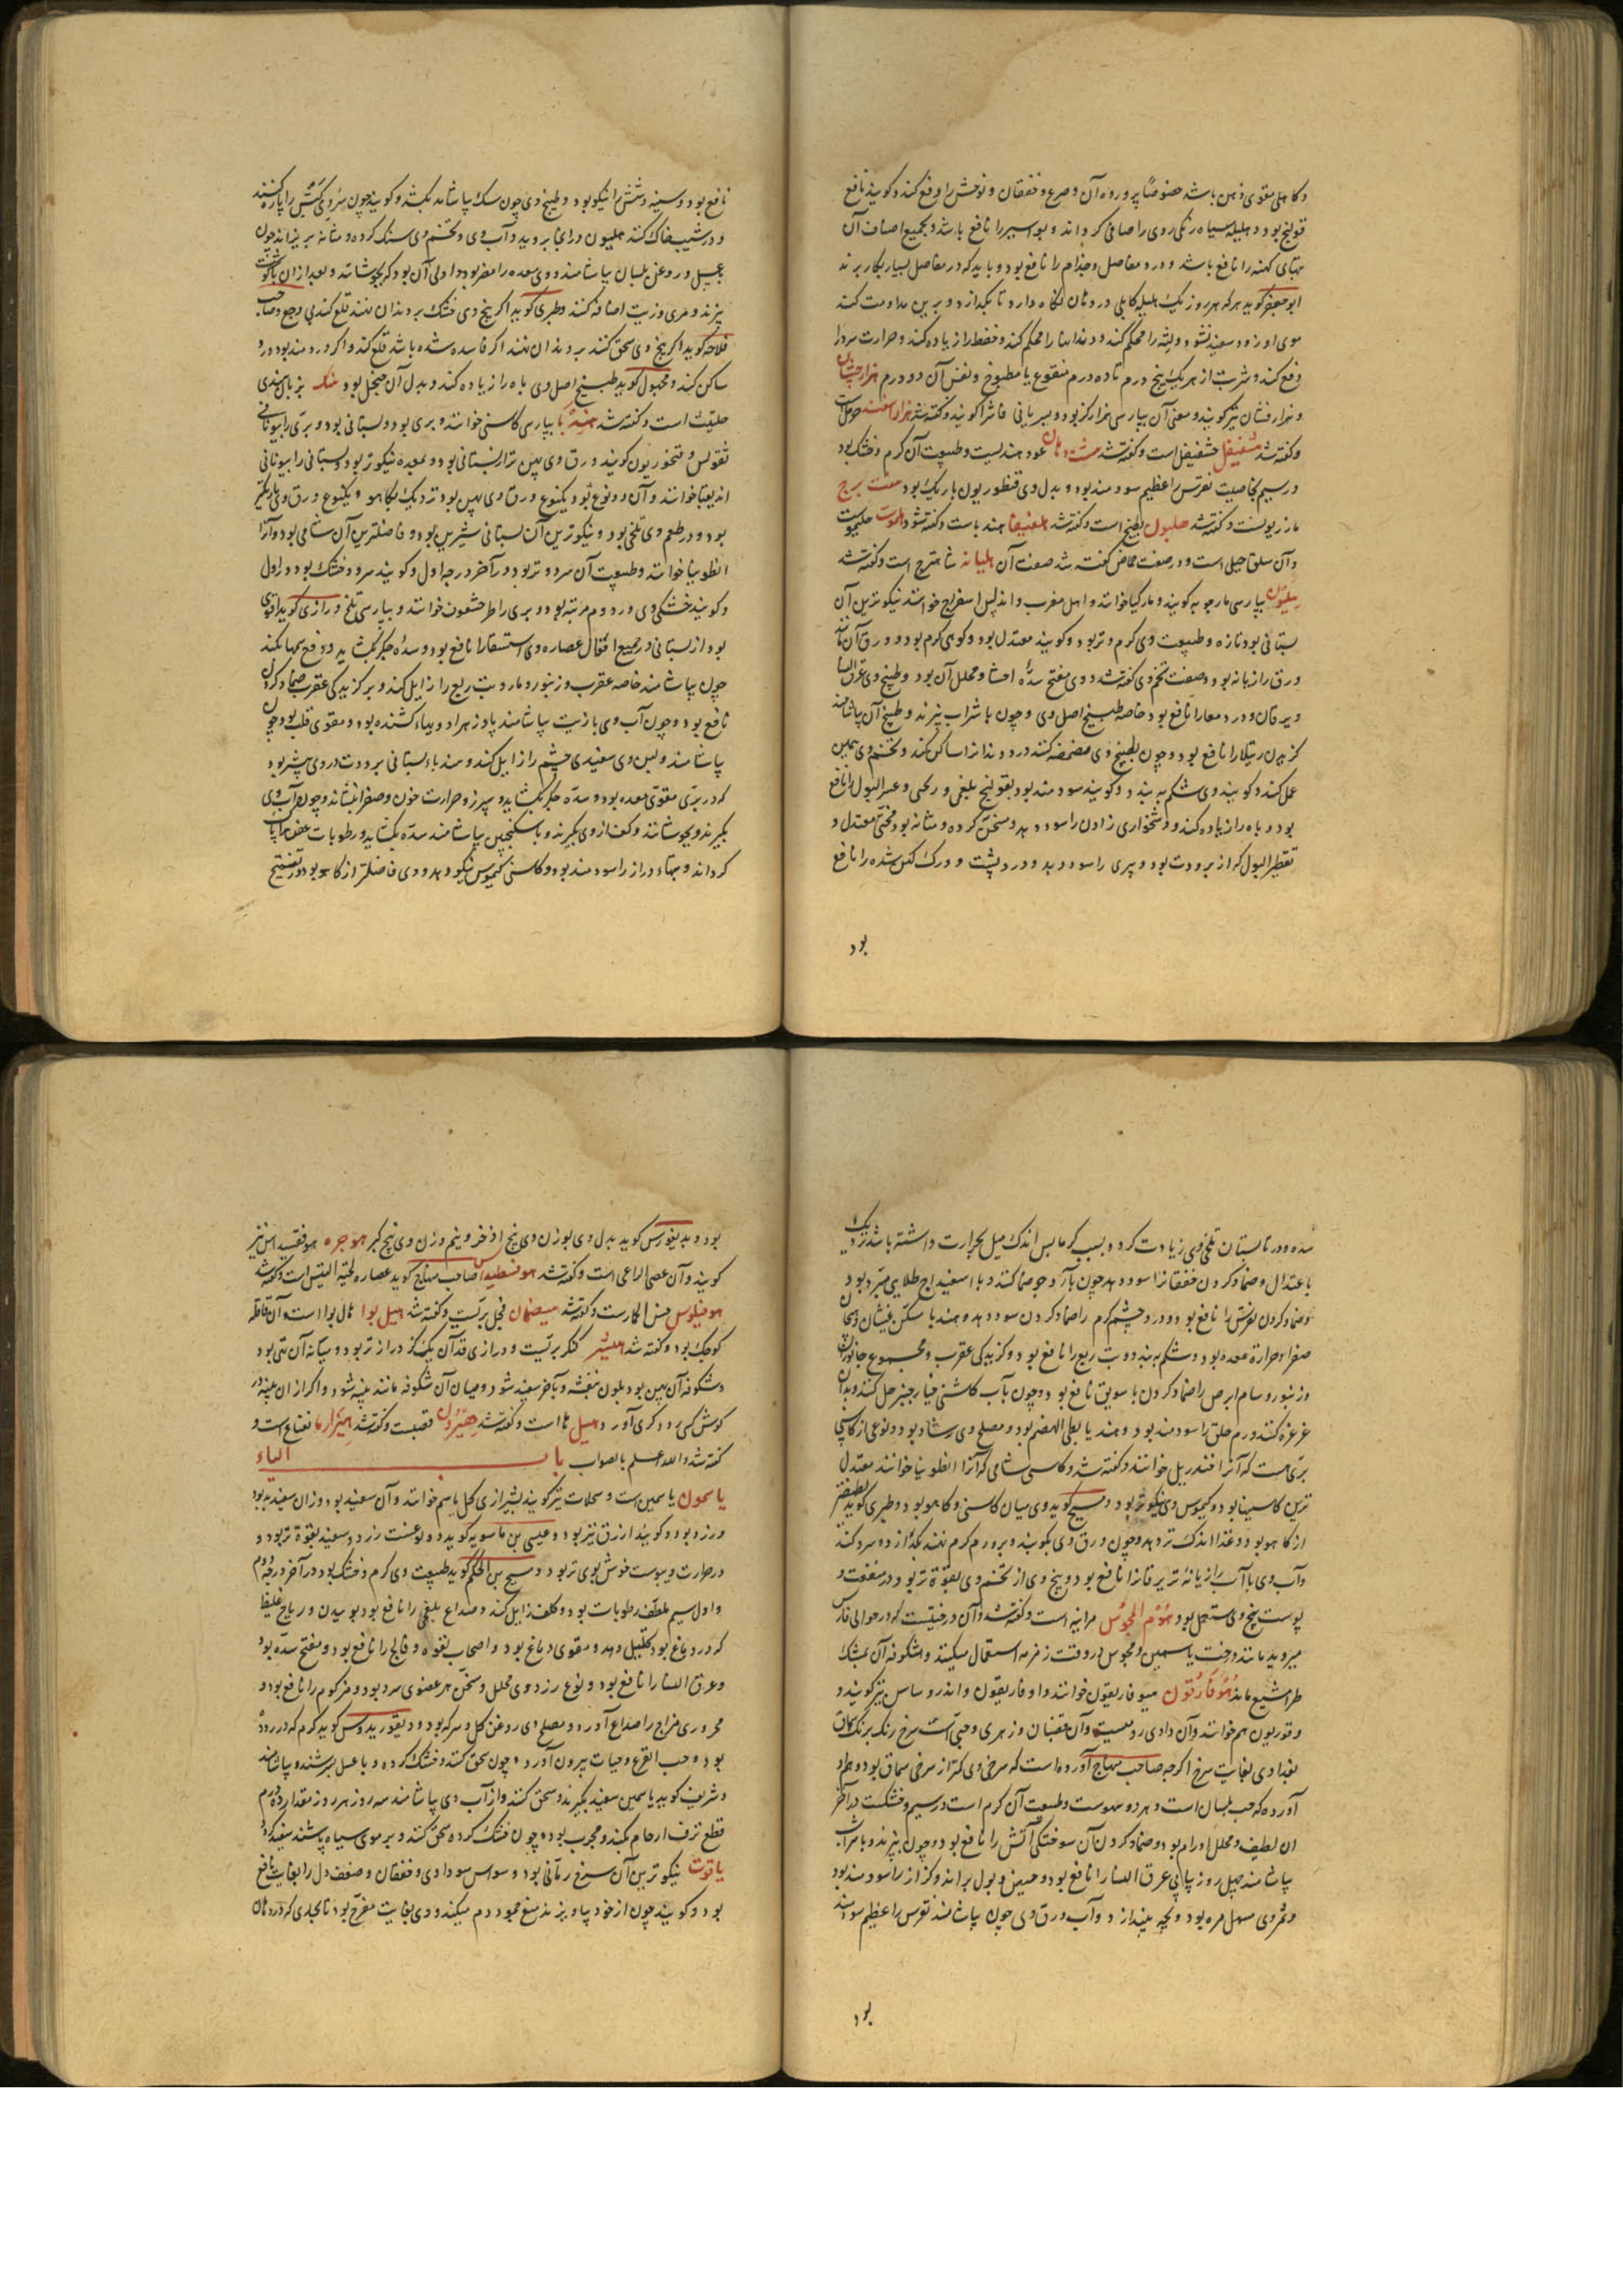 و کاهلی مقوی ذهن باشد خصوصاً پرورده آن و صرع و خفقان و توحش را دفع کند و کویند نافع
قولنج بود و هلیله سیاه رنکی روی را صافی کرداند و بواسیر را نافع باشد و بجمیع اصناف آن
تبهای کهنه را نافع باشد و درد مفاصل و جذام را نافع بود و باید که در مفاصل بسیار بکار برند
ابو جعفر کوید هر که هر روز یک هلیله کابلی در دهان نکاه دارد تا بکدازد و برین مداومت کند
موی او زود سفید نشود و لیثه را محکم کند و دندانها را محکم کند و حفظ را زیاده کند و حرارت سر را
دفع کند و شربت از هر یک پنج درم تا ده درم منقوع یا مطبوخ و نفس آن دو درم هزارجشان
و هزار فشان نیز کویند و معنی آن بپارسی هزار کز بود و بسریانی فاشرا کویند و کفته شد هزار اسفند حرمل است
و کفته شد شفیقل خشفیفل است و کفته شد هشت دهان عود هندیست و طبیعت آن کرم و خشک بود
در سیم بخاصیت نقرس را عظیم سودمند بود و بدل وی قنطوریون باریک بود هفت برج
مازریونست و کفته شد هلبون بطیخ است و کفته شد هلفیفا هندباست و کفته شود هلموت حلیموست
و آن سلق جبلی است و در صفت حماض کفته شد صفت آن هلیانه شاهترج است و کفته شد
هلیون بپارسی مارجوبه کویند و مارکیا خوانند و اهل مغرب و اندلس اسفراج خوانند نیکوترین آن
بستانی بود تازه و طبیعت وی کرم و تر بود و کویند معتدل بود و کوهی کرم بود و ورق آن مانند
ورق رازیانه بود و صفت تخم وی کفته شد و وی مفتح سدّه احشا و محلل آن بود و طبیخ وی عرق النسا
و یرقان و درد معا را نافع بود خاصه طبیخ اصل وی و چون با شراب بپزند و طبیخ آن بیاشامند
کزیدن رتیلا را نافع بود و چون بطبیخ وی مضمضه کنند درد دندان را ساکن کند و تخم وی همین
عمل کند و کویند وی شکم به بندد و کویند سودمند بود بقولنج بلغمی و ریحی و عسر البول را نافع
بود و باه را زیاده کند و دشخواری زادن را سود دهد و مسخن کرده و مثانه بود مجفف معتدل و
تقطیر البول که از برودت بود و پیری را سود دهد و درد پشت و ورک کهن شده را نافع
بود
نافع بود و سینه و شش را نیکو بود و طبیخ وی چون سک بیاشامد بکشد و کویند چون سروی کبش را پاره کنند
و در شیب خاک کنند هلیون در انجا بروید و آب وی و تخم وی سنک کرده و مثانه بریزاند چون
بعسل و روغن بلسان بیاشامند و وی معده را مضر بود و اولی آن بود که بجوشانند و بعد از ان با کوشت
بپزند و مری و زیت اضافه کنند و طبری کوید اکر بیخ وی خشک بر دندان نهند قلع کند بی وجع و صاحب
فلاحه کوید اکر بیخ وی سحق کنند بر دندان نهند اکر فاسد شده باشد قلع کند و اکر دردمند بود درد
ساکن کند و مجهول کوید طبیخ اصل وی باه را زیاده کند و بدل آن جنجل بود هنک بزبان هندی
حلتیت است و کفته شد هندبا بپارسی کاسنی خوانند و بری بود و بستانی بود و بری را بیونانی
تقولس و قنخوریون کویند ورق وی پهن تر از بستانی بود و بمعده نیکوتر بود و بستانی را بیونانی
اندیقیا خوانند و آن دو نوع بود یکنوع ورق وی پهن بود نزدیک بکاهو و یکنوع ورق وی باریکتر
بود و در طعم وی تلخی بود و نیکوترین آن بستانی شیرین بود و فاضلترین آن شامی بود و آنرا
انطوبیا خوانند و طبیعت آن سرد و تر بود در آخر درجه اول و کویند سرد و خشک بود در اول
و کویند خشکی وی در دوم مرتبه بود و بری را طرخشقون خوانند و بپارسی تلخ و رازی کوید اقوی
بود از بستانی در جمیع افعال عصاره وی استسقا را نافع بود و سدّه جکر بکشاید و دفع سمها بکند
چون بیاشامند خاصه عقرب و زنبور و مار و تب ربع را زایل کند و بر کزیدکی عقرب ضماد کردن
نافع بود و چون آب وی با زیت بیاشامند پادزهر ادویهاء کشنده بود و مقوی قلب بود چون
بیاشامند و لبن وی سفیدی چشم را زایل کند و هندباء بستانی برودت در وی بیشتر بود
که در بری مقوی معده بود و سدّه جکر بکشاید و سپرز و حرارت خون و صفرا بنشاند و چون آب وی
بکیرند و بجوشانند و کف از وی بکیرند و با سکنجبین بیاشامند سدّه بکشاید و رطوبات عفن را پاک
کرداند و تبهاء دراز را سودمند بود و کاسنی کیموس نیکو دهد و وی فاضلتر از کاهو بود در تفتیح
سده و در تابستان تلخی وی زیادت کردد بسبب کرما پس اندک میل بحرارت داشته باشد نزدیک
باعتدال و ضماد کردن خفقان را سود دهد چون با آرد جو ضماد کنند و با اسفیداج طلایی مبرد بود
و ضماد کردن نقرس را نافع بود و ورم چشم کرم را ضماد کردن سود دهد و هندبا مسکن غثیان و هیجان
صفرا و حرارة معده بود و شکم به بندد و تب ربع را نافع بود و کزیدکی عقرب و مجموع جانوران
و زنبور و سام ابرص را ضماد کردن با سویق نافع بود و چون بآب کاسنی خیارچنبر حل کنند و بدان
غرغره کنند ورم حلق را سودمند بود و هندبا بطی الهضم بود و مصلح وی رشاد بود و نوعی از کاسنی
بری هست که آنرا خندریل خوانند و کفته شد و کاسنی شامی که آنرا انطوبیا خوانند معتدل
ترین کاسنیها بود و کیموس وی نیکوتر بود و مسیح کوید وی میان کاسنی و کاهو بود و طبری کوید لطیفتر
از کاهو بود و غذا اندک تر دهد و چون ورق وی بکوبند و بر ورم کرم نهند بکدازد و سرد کند
و آب وی با آب رازیانهٔ تر یرقان را نافع بود و بیخ وی از تخم وی بقوة تر بود در منفعت و
پوست بیخ وی مستعمل بود هوم المجوس مرانیه است و کفته شد و آن درختیست که در حوالی فارس
میروید مانند درخت یاسمین و مجوس در وقت زمزمه استعمال میکنند و شکوفه آن بمشک
طرامشیع ماند هوفاریقون هیوفاریقون خوانند و اوفاریقون و اندروسامن نیز کویند و
و قوریون هم خوانند و آن دادی رومیست و آن قضبان و زهری و حبی است سرخ رنک برنک سماق
بغدادی بغایت سرخ اکرچه صاحب منهاج آورده است که سرخی وی کمتر از سرخی سماق بود و هم او
آورده که حب بلسان است و هر دو سهوست و طبیعت آن کرم است در سیم و خشکست در آخر
ان لطیف و محلل اورام بود و ضماد کردن آن سوختکی آتش را نافع بود و چون بپزند و با شراب
بیاشامند چهل روز پیاپی عرق النسا را نافع بود و حیض و بول براند و کزاز را سودمند بود
و ثمر وی مسهل مره بود و بچه بیندازد و آب ورق وی چون بیاشامند نقرس را عظیم سودمند
بود
بود و بدیغورس کوید بدل وی بوزن وی بیخ اذخر و نیم وزن وی بیخ کبر هوجره هوفقسیداس نیز
کویند و آن عصی الراعی است و کفته شد هوفسطیداس صاحب منهاج کوید عصاره لحیة التیس است و کفته شد
هوفیلوس خس الحمارست و کفته شد هیضمان فجل بریست و کفته شد هیل بوا هال بوا است و آن قاقله
کوچک بود و کفته شد هیشر کنکر بریست و درازی قد آن یک کز درازتر بود و میانه آن تهی بود
و شکوفه آن پهن بود بلون بنفشه و بآخر سفید شود و میان آن شکوفه مانند پنبه شود و اکر از ان پنبه در
کوش کسی رود کری آورد هیل هال است و کفته شد هیزدان قصبست و کفته شد هیزارما نعناع است و
کفته شد و الله اعلم بالصواب باب الیاء
یاسمون یاسمین است و سجلات نیز کویند بشیرازی کل یاسم خوانند و آن سفید بود و زان سفید به بود
و زرد بود و کویند ازرق نیز بود و عیسی بن ماسویه کوید دو نوعست زرد و سفید بقوة تر بود و
در حرارت و یبوست خوش بوی تر بود و مسیح بن الحکم کوید طبیعت وی کرم و خشک بود در آخر درجه دوم
و اول سیم ملطف رطوبات بود و کلف زایل کند و صداع بلغمی را نافع بود بوییدن و ریاح غلیظ
که در دماغ بود تحلیل دهد و مقوی دماغ بود و اصحاب لقوه و فالج را نافع بود و مفتح سدّه بود
و عرق النسا را نافع بود و نوع زرد وی محلل و مسخن هر عضوی سرد بود و مزکوم را نافع بود و
محروری مزاج را صداع آورد و مصلح وی روغن کل و سرکه بود و دیقوریدوس کوید کرم که در رودهٔ
بود و حب القرع و حیات بیرون آورد و چون سحق کنند و خشک کرده و با عسل بسرشند و بیاشامند
و شریف کوید یاسمین سفید بکیرند و سحق کنند و از آب وی بیاشامند سه روز هر روز مقدار ده درم
قطع نزف ارحام بکند و مجرب بود و چون خشک کرده سحق کنند و بر موی سیاه پاشند سفید کردد
یاقوت نیکوترین آن سرخ رمانی بود وسواس سوداوی و خفقان و ضعف دل را بغایت نافع
بود و کویند چون از خود بیاویزند منع جمود دم میکند و وی بغایت مفرح بود تا بحدی که در دهان